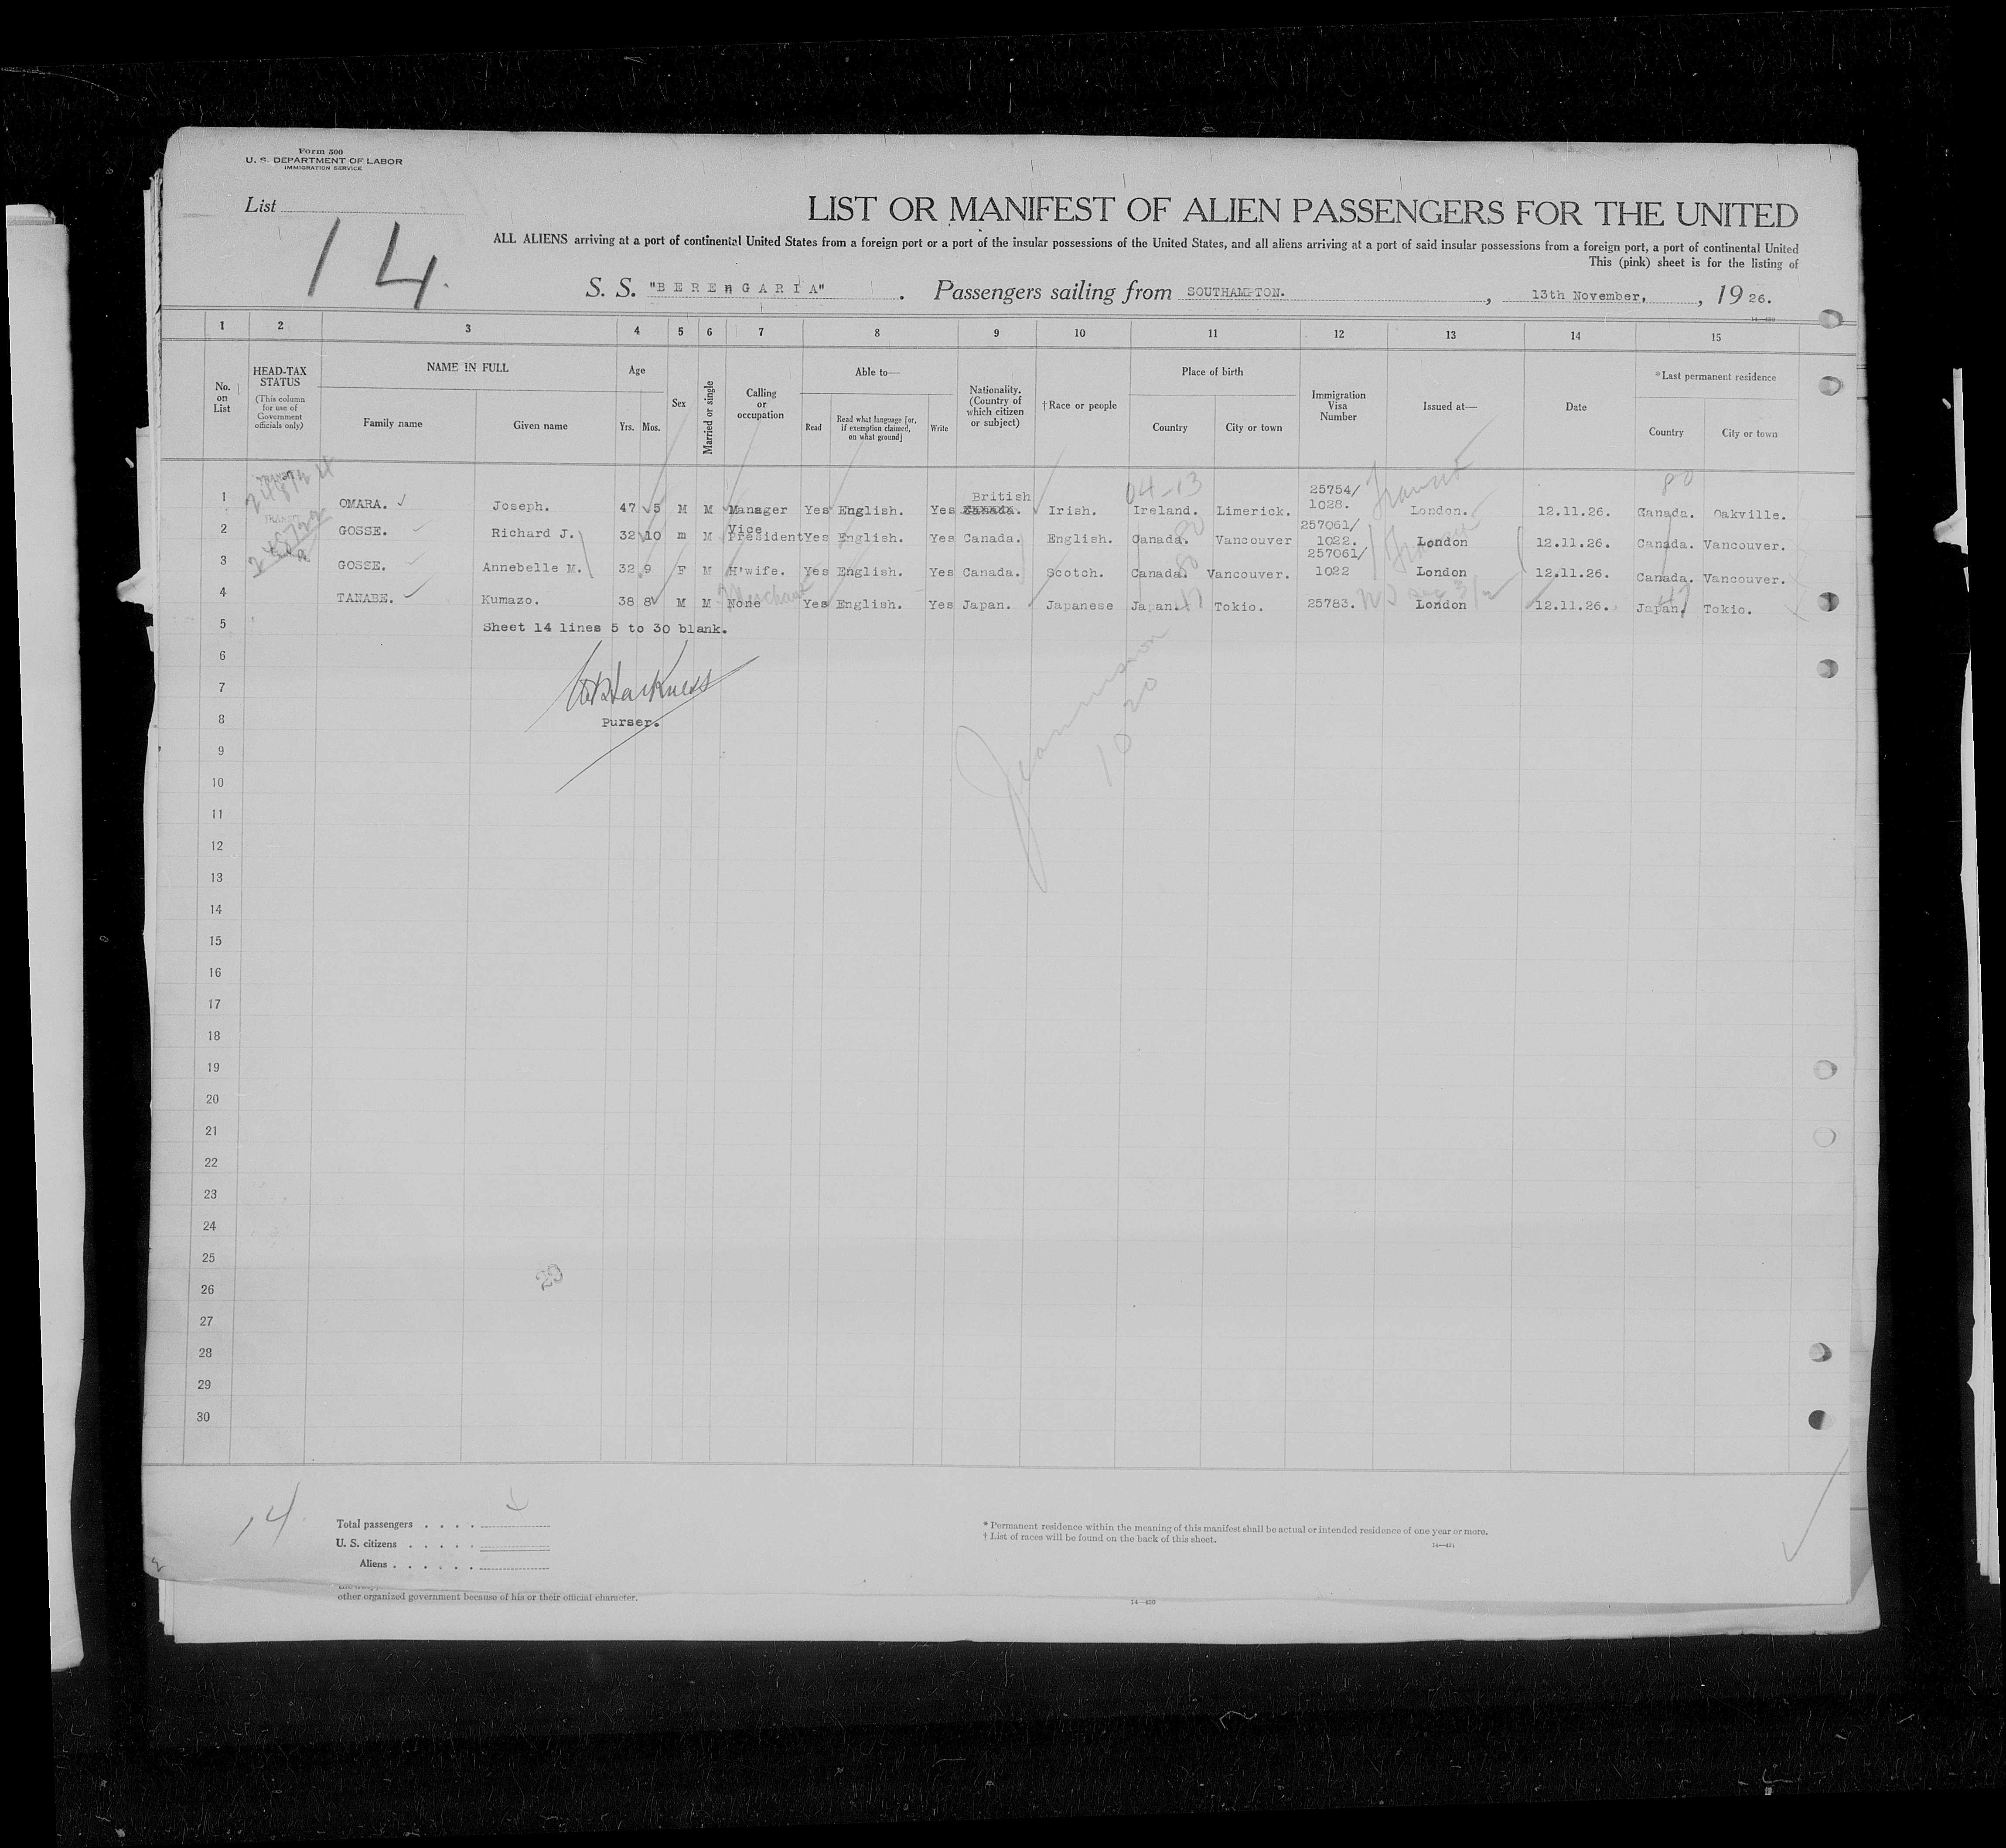 Form 500
U. S. DEPARTMENT OF LABOR
IMMIGRATION SERVICE
List
14.
LIST OR MANIFEST OF ALIEN PASSENGERS FOR THE UNITED
ALL ALIENS arriving at a port of continental United States from a foreign port or a port of the insular possessions of the United States, and all aliens arriving at a port of said insular possessions from a foreign port, a port of continental United
This (pink) sheet is for the listing of
S. S. "BERENGARIA". Passengers sailing from SOUTHAMPTON., 13th November, , 19 26.
14—430
1 2 3 4 5 6 7 8 9 10 11 12 13 14 15
No. on List
HEAD-TAX STATUS (This column for use of Government officials only)
NAME IN FULL
Family name Given name
Age
Yrs. Mos.
Sex
Married or single
Calling or occupation
Able to—
Read Read what language [or, if exemption claimed, on what ground] Write
Nationality. (Country of which citizen or subject)
†Race or people
Place of birth
Country City or town
Immigration Visa Number
Issued at—
Date
*Last permanent residence
Country City or town
04-13
80
1 OMARA. Joseph. 47 5 M M Manager Yes English. Yes British Canada. Irish. Ireland. Limerick. 25754/1028. London. 12.11.26. Canada. Oakville.
2 GOSSE. Richard J. 32 10 m M Vice President Yes English. Yes Canada. English. Canada. Vancouver 257061/1022. London 12.11.26. Canada. Vancouver.
3 GOSSE. Annebelle M. 32 9 F M H'wife. Yes English. Yes Canada. Scotch. Canada. Vancouver. 257061/1022 London 12.11.26. Canada. Vancouver.
Merchant
4 TANABE. Kumazo. 38 8 M M None Yes English. Yes Japan. Japanese Japan. 47 Tokio. 25783. London 12.11.26. Japan. 47 Tokio.
5 Sheet 14 lines 5 to 30 blank.
6
7 Harkness
8 Purser.
9
10
11
12
13
14
15
16
17
18
19
20
21
22
23
24
25
26
27
28
29
30
10 20
29
14
Total passengers . . . .
U. S. citizens . . . . .
Aliens . . . . . .
* Permanent residence within the meaning of this manifest shall be actual or intended residence of one year or more.
† List of races will be found on the back of this sheet.
14—434
other organized government because of his or their official character.
14—430